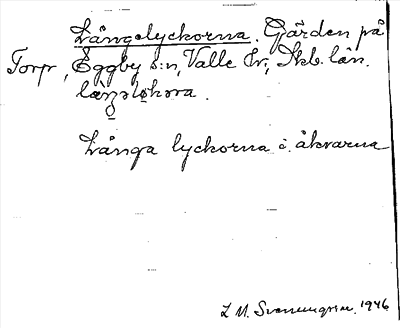 Långelyckorna. Gärden på
Torp, Eggby s:n, Valle hr, Skb. län.
Långa lyckorna i åkrarna
1946